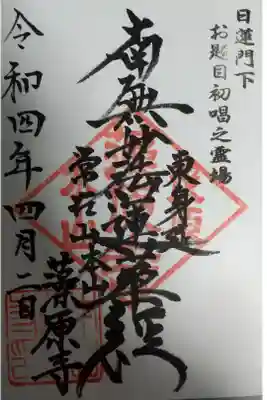 日蓮門下
お題目初唱之霊場
東身延
南無妙法蓮華経
常在山本山
藻原寺
令和四年四月二日